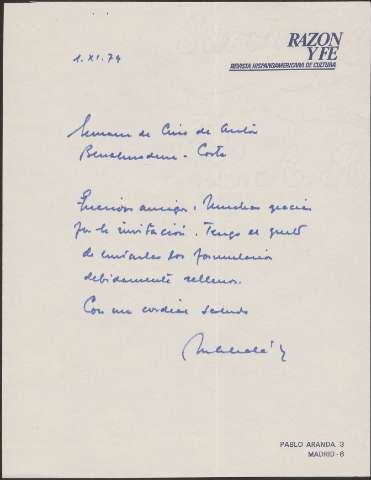 RAZON
Y FE
REVISTA HISPANOAMERICANA DE CULTURA
1.XI.74
Semana de Cine de Autor
Benalmadena - Costa
Queridos amigos. Muchas gracias
por la invitación. Tengo el gusto
de enviarles los formularios
debidamente rellenos.
Con un cordial saludo
PABLO ARANDA 3
MADRID - 6